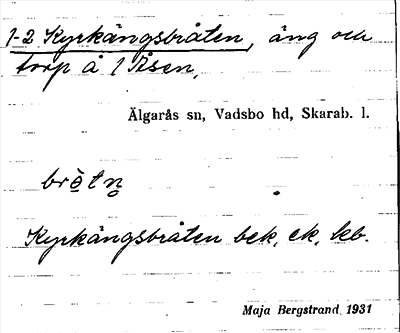 1-2 Kyrkängsbråten, äng och
torp å 1 Åsen.
Älgarås sn, Vadsbo hd, Skarab. l.
brò̠t n̥
Kyrkängsbråten bek, ek, kb.
Maja Bergstrand 1931